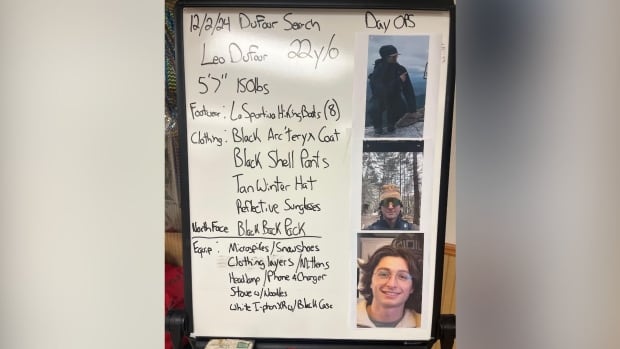 12/2/24 Dufour Search Day OPS
Leo Dufour 22 y/o
5'7" 150lbs
Footwear: La Sportiva Hiking Boots (8)
Clothing: Black Arc'teryx Coat
Black Shell Pants
Tan Winter Hat
Reflective Sunglasses
North Face Black Back Pack
Equip: Microspikes/Snowshoes
Clothing layers/Mittens
Headlamp/Phone & Charger
Stove w/Noodles
White I-phone XR w/Black Case